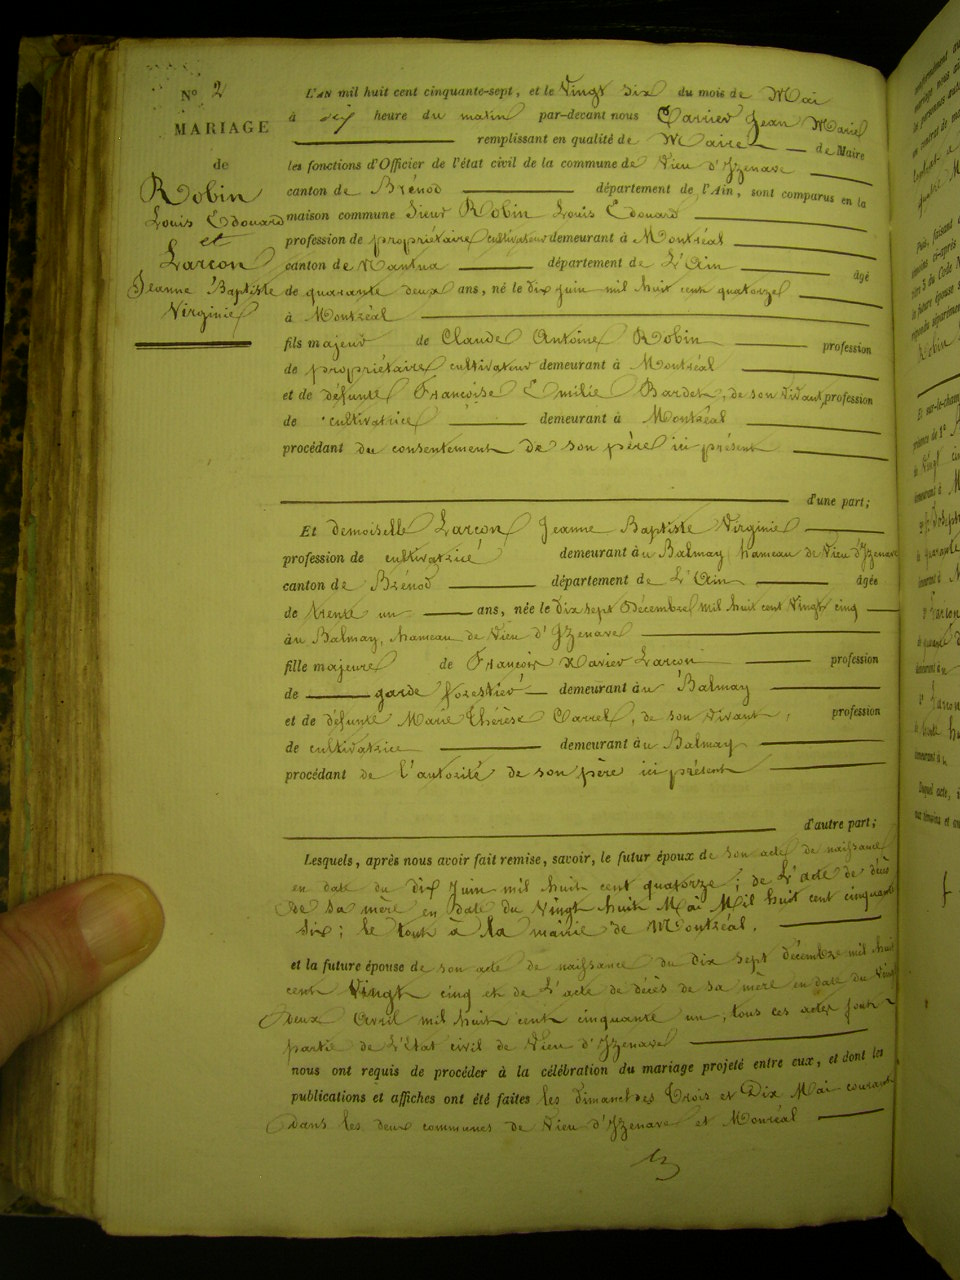 N° 2
MARIAGE
de
Robin
Louis Edouard
et
Larçon
Jeanne Baptiste
Virginie
L'AN mil huit cent cinquante-sept, et le Vingt Six du mois de Mai
à dix heure du matin par-devant nous Carrier Jean Marie
remplissant en qualité de Maire de Maire
les fonctions d'Officier de l'état civil de la commune de Vieu d'Izenave
canton de Brénod département de l'Ain, sont comparus en la
maison commune Sieur Robin Louis Edouard
profession de propriétaire cultivateur demeurant à Montréal
canton de Nantua département de L'Ain âgé
de quarante deux ans, né le dix juin mil huit cent quatorze
à Montréal
fils majeur de Claude Antoine Robin profession
de propriétaire cultivateur demeurant à Montréal
et de défunte Françoise Emilie Bardet, de son vivant, profession
de cultivatrice demeurant à Montréal
procédant du consentement de son père ici présent
d'une part;
Et demoiselle Larçon Jeanne Baptiste Virginie
profession de cultivatrice demeurant àu Balmay hameau de Vieu d'Izenave
canton de Brénod département de L'Ain âgée
de trente un ans, née le dix sept Décembre mil huit cent vingt cinq
àu Balmay, hameau de Vieu d'Izenave
fille majeure de François Xavier Larçon profession
de garde forestier demeurant àu Balmay
et de défunte Marie Thérèse Carrel, de son vivant, profession
de cultivatrice demeurant àu Balmay
procédant de l'autorité de son père ici présent
d'autre part;
Lesquels, après nous avoir fait remise, savoir, le futur époux de son acte de naissance
en date du dix Juin mil huit cent quatorze; de L'acte de décès
de sa mère en date du vingt huit Mai Mil huit cent cinquante
Six; le tout à la mairie de Montréal.
et la future épouse de son acte de naissance du dix sept décembre mil huit
cent Vingt cinq et de L'acte de décès de sa mère en date du Vingt
deux Avril mil huit cent cinquante un; tous ces actes font
partie de L'état civil de Vieu d'Izenave
nous ont requis de procéder à la célébration du mariage projeté entre eux, et dont les
publications et affiches ont été faites les dimanches trois et Dix Mai courant
dans les deux communes de Vieu d'Izenave et Monréal